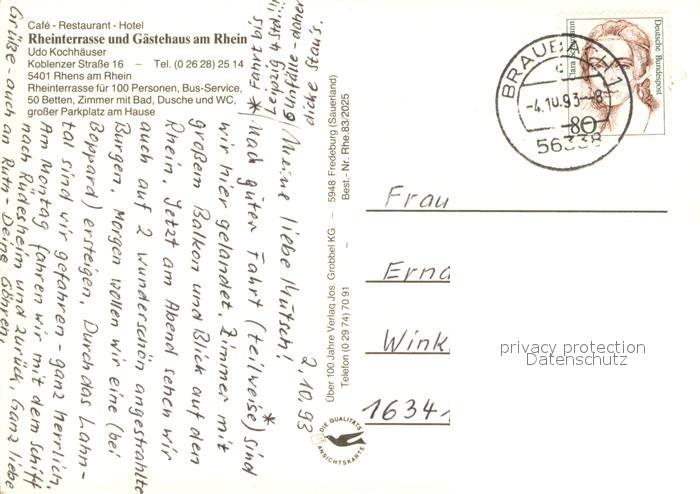 Café - Restaurant - Hotel
Rheinterrasse und Gästehaus am Rhein
Udo Kochhäuser
Koblenzer Straße 16 – Tel. (0 26 28) 25 14
5401 Rhens am Rhein
Rheinterrasse für 100 Personen, Bus-Service,
50 Betten, Zimmer mit Bad, Dusche und WC,
großer Parkplatz am Hause
2.10.93
Meine liebe Mutsch!
Nach guter Fahrt (teilweise*) sind
wir hier gelandet. Zimmer mit
großem Balkon und Blick auf den
Rhein. Jetzt am Abend sehen wir
auch auf 2 wunderschön angestrahlte
Burgen. Morgen wollen wir eine (bei
Boppard) ersteigen. Durch das Lahn-
tal sind wir gefahren - ganz herrlich.
Am Montag fahren wir mit dem Schiff
nach Rüdesheim und zurück. Ganz liebe
Grüße - auch an Ruth - Deine Gören.
* Fahrzeit bis
Leipzig 4 Std!!!
Unfälle - daher
dicke Stau's.
Über 100 Jahre Verlag Jos. Grobbel KG – 5948 Fredeburg (Sauerland)
Telefon (0 29 74) 70 91 – Best.- Nr. Rhe.83/2025
DIE QUALITÄTS
ANSICHTSKARTE
BRAUBACH 1
-4.10.93-8
56338
Clara Schumann
Deutsche Bundespost
80
Frau
Erna
Wink
1634
privacy protection
Datenschutz